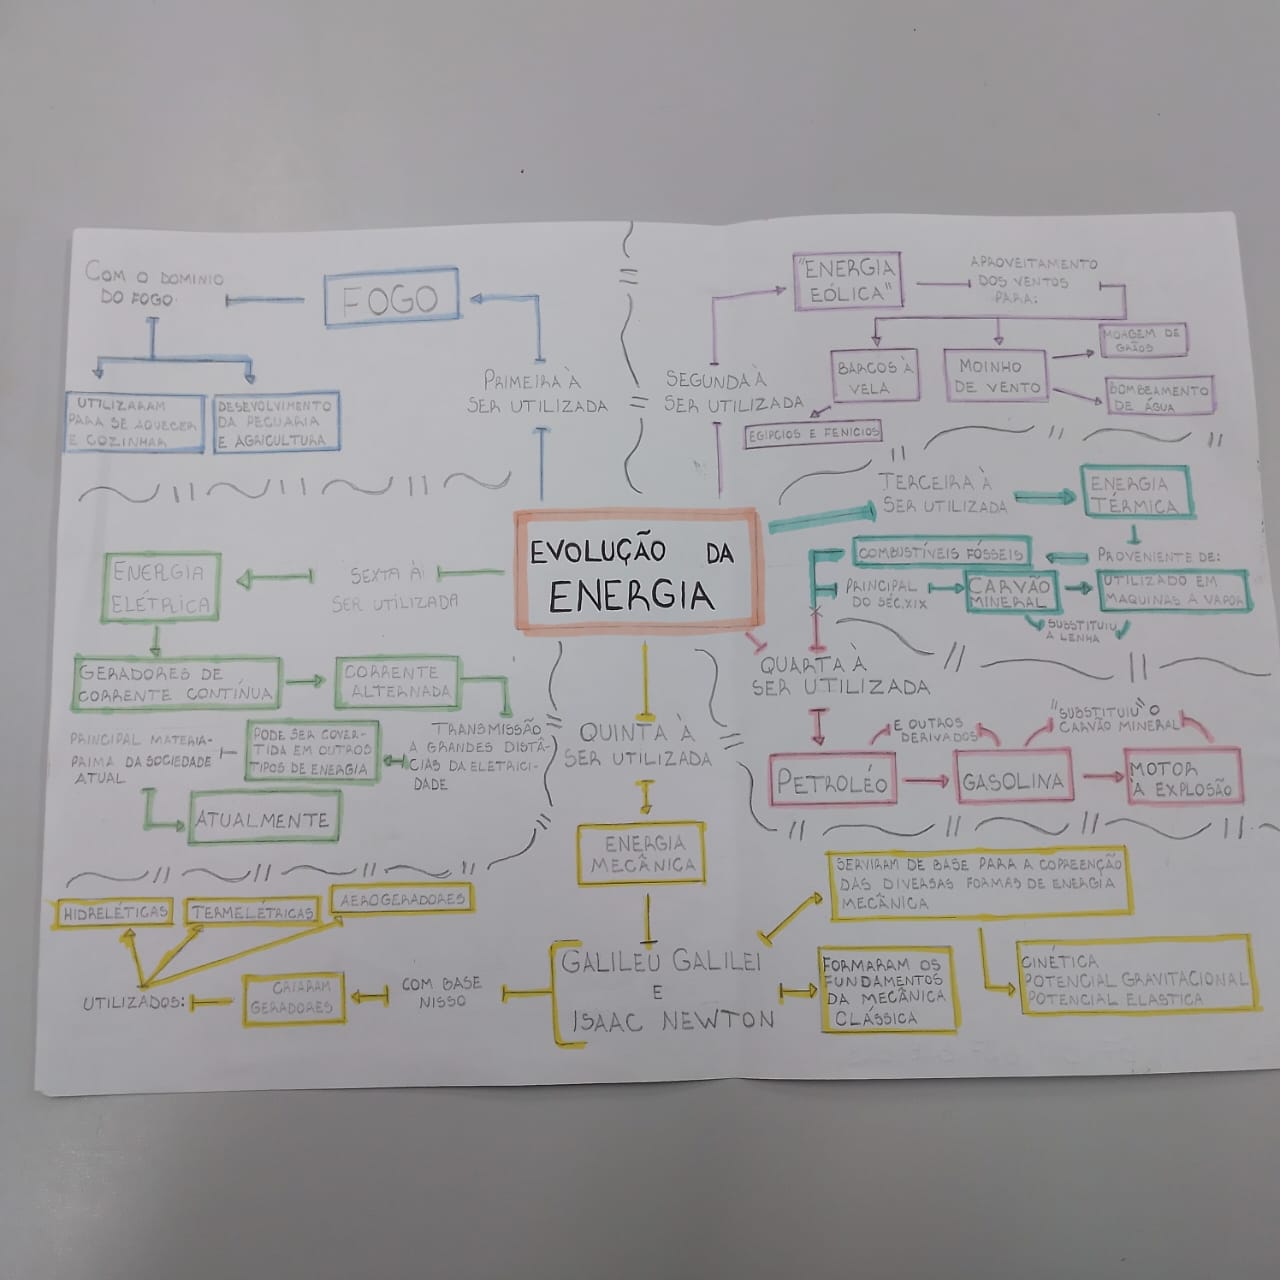 EVOLUÇÃO DA
ENERGIA
PRIMEIRA À
SER UTILIZADA
FOGO
COM O DOMINIO
DO FOGO
UTILIZARAM
PARA SE AQUECER
E COZINHAR
DESEVOLVIMENTO
DA PECUARIA
E AGRICULTURA
SEGUNDA À
SER UTILIZADA
"ENERGIA
EÓLICA"
APROVEITAMENTO
DOS VENTOS
PARA:
BARCOS À
VELA
EGIPCIOS E FENICIOS
MOINHO
DE VENTO
MOAGEM DE
GRÃOS
BOMBEAMENTO
DE ÁGUA
TERCEIRA À
SER UTILIZADA
ENERGIA
TÉRMICA
PROVENIENTE DE:
COMBUSTÍVEIS FÓSSEIS
PRINCIPAL
DO SÉC.XIX
CARVÃO
MINERAL
UTILIZADO EM
MAQUINAS A VAPOR
SUBSTITUIU
A LENHA
QUARTA À
SER UTILIZADA
PETROLÉO
E OUTROS
DERIVADOS
GASOLINA
"SUBSTITUIU" O
CARVÃO MINERAL
MOTOR
A EXPLOSÃO
QUINTA À
SER UTILIZADA
ENERGIA
MECÂNICA
GALILEU GALILEI
E
ISAAC NEWTON
SERVIRAM DE BASE PARA A COPREENÇÃO
DAS DIVERSAS FORMAS DE ENERGIA
MECÂNICA
CINÉTICA
POTENCIAL GRAVITACIONAL
POTENCIAL ELASTICA
FORMARAM OS
FUNDAMENTOS
DA MECÂNICA
CLÁSSICA
COM BASE
NISSO
CRIARAM
GERADORES
UTILIZADOS:
HIDRELÉTICAS
TERMELÉTRICAS
AEROGERADORES
SEXTA À
SER UTILIZADA
ENERGIA
ELÉTRICA
GERADORES DE
CORRENTE CONTÍNUA
CORRENTE
ALTERNADA
TRANSMISSÃO
A GRANDES DISTÂ-
CIAS DA ELETRICI-
DADE
PODE SER COVER-
TIDA EM OUTROS
TIPOS DE ENERGIA
PRINCIPAL MATERIA-
PRIMA DA SOCIEDADE
ATUAL
ATUALMENTE